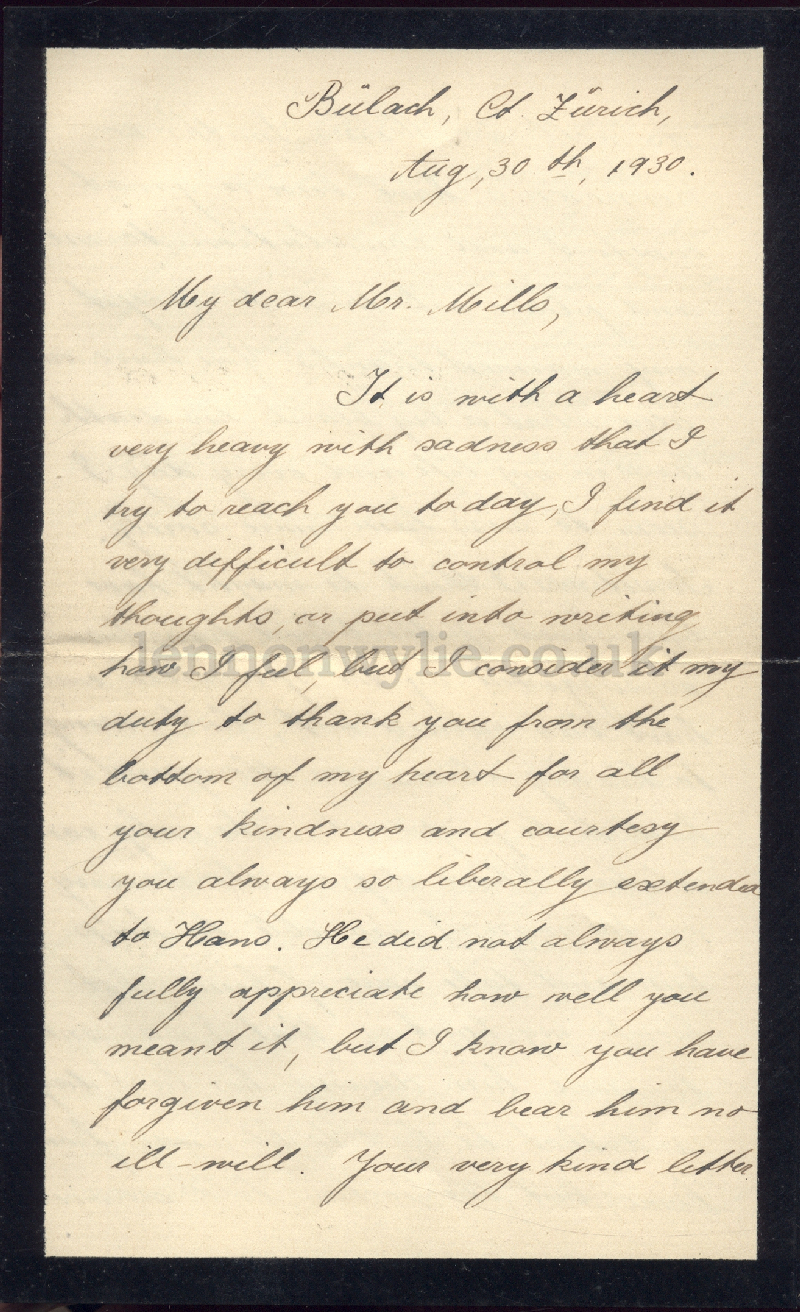 Bülach, Ct. Zürich,
Aug, 30 th, 1930.
My dear Mr. Mills,
It is with a heart
very heavy with sadness that I
try to reach you today, I find it
very difficult to control my
thoughts, or put into writing
lennonwylie.co.uk
how I feel, but I consider it my
duty to thank you from the
bottom of my heart for all
your kindness and courtesy
you always so liberally extended
to Hans. He did not always
fully appreciate how well you
meant it, but I know you have
forgiven him and bear him no
ill-will. Your very kind letter